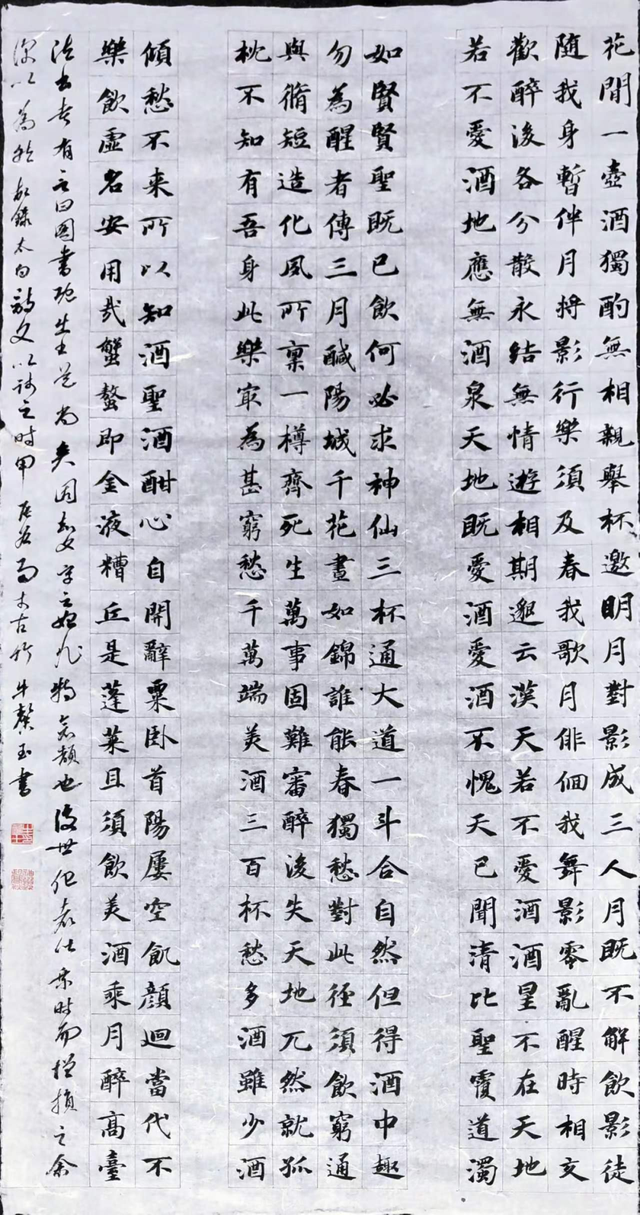 花間一壺酒獨酌無相親舉杯邀明月對影成三人月既不解飲影徒
隨我身暫伴月將影行樂須及春我歌月徘徊我舞影零亂醒時相交
歡醉後各分散永結無情遊相期邈云漢天若不愛酒酒星不在天地
若不愛酒地應無酒泉天地既愛酒愛酒不愧天已聞清比聖復道濁
如賢賢聖既已飲何必求神仙三杯通大道一斗合自然但得酒中趣
勿為醒者傳三月醎陽城千花晝如錦誰能春獨愁對此徑須飲窮通
與脩短造化夙所稟一樽齊死生萬事固難審醉後失天地兀然就孤
枕不知有吾身此樂最為甚窮愁千萬端美酒三百杯愁多酒雖少酒
傾愁不来所以知酒聖酒酣心自開辭粟卧首陽屢空飢顏迴當代不
樂飲虛名安用哉蟹螯即金液糟丘是蓬萊且須飲美酒乘月醉高臺
法書者有言曰圖書 尚矣 文字之始 也後世但 時而增損之余
深以為然 錄太白詩文以識之時甲辰 古竹牛馨玉書